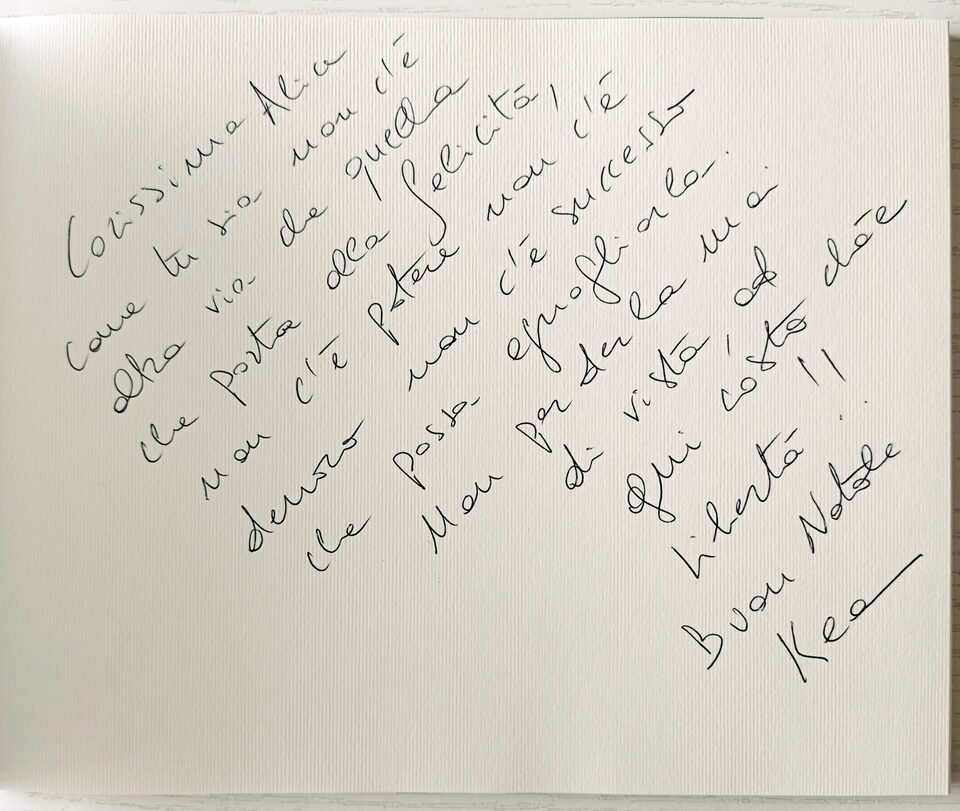 Carissima Alice
come tu sia non c'è
altra via che quella
che porta alla felicità,
non c'è potere non c'è
denaro non c'è successo
che possa eguagliarla.
Non perderla mai
di vista, ad
ogni costo cioè
libertà !!
Buon Natale
Kea